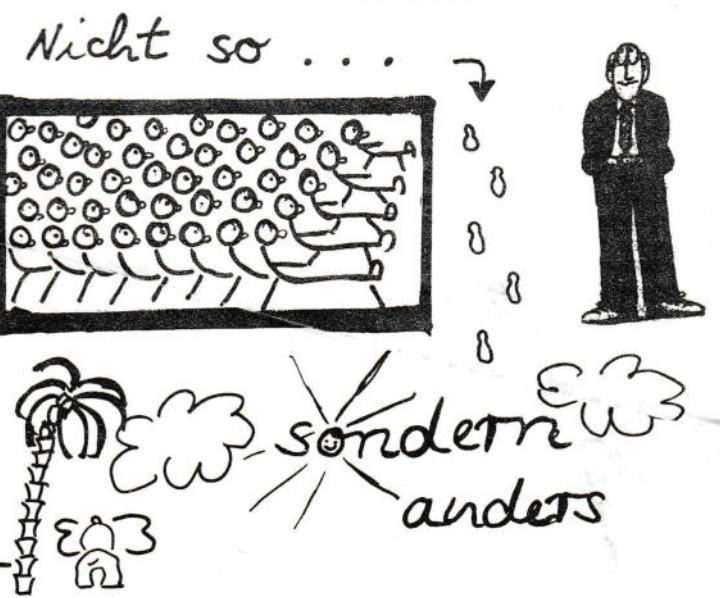 Nicht so ...
sondern
anders